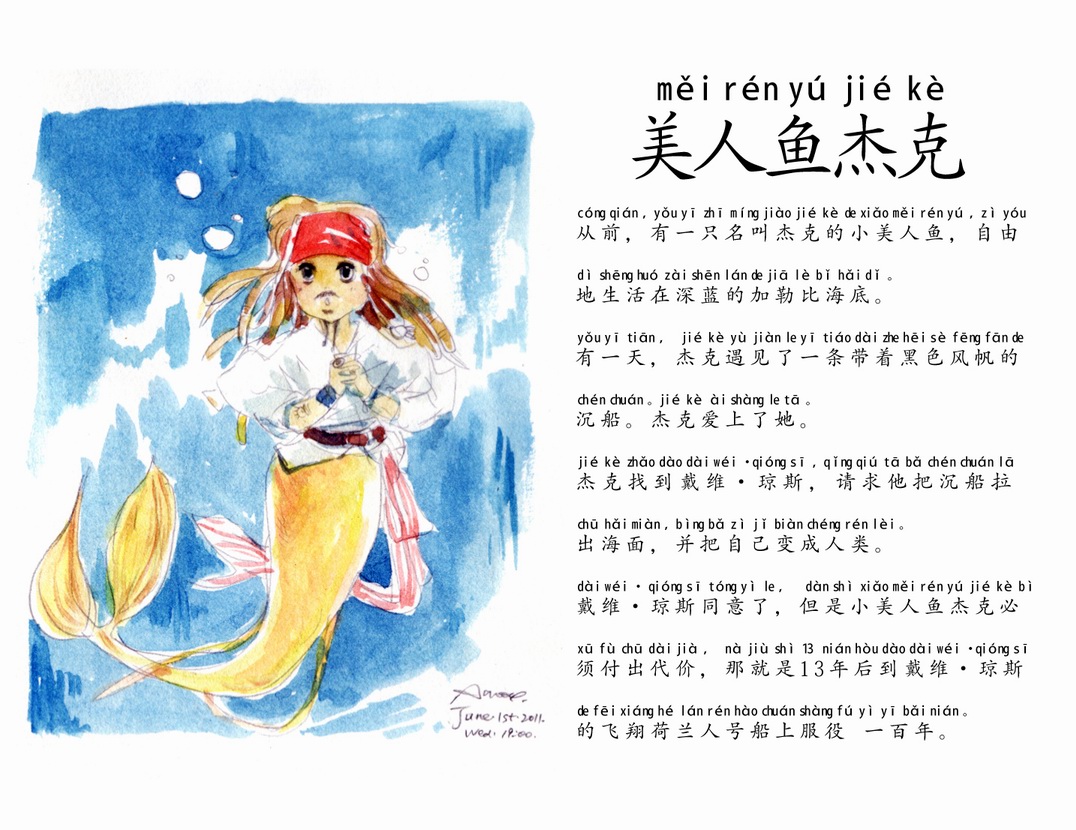 June 1st 2011.
Wed. 19:00.
měi rén yú jié kè
美人鱼杰克
cóng qián, yǒu yī zhī míng jiào jié kè de xiǎo měi rén yú, zì yóu
从前，有一只名叫杰克的小美人鱼，自由
dì shēng huó zài shēn lán de jiā lè bǐ hǎi dǐ 。
地生活在深蓝的加勒比海底。
yǒu yī tiān, jié kè yù jiàn le yī tiáo dài zhe hēi sè fēng fān de
有一天，杰克遇见了一条带着黑色风帆的
chén chuán 。 jié kè ài shàng le tā 。
沉船。杰克爱上了她。
jié kè zhǎo dào dài wéi ·qióng sī , qǐng qiú tā bǎ chén chuán lā
杰克找到戴维·琼斯，请求他把沉船拉
chū hǎi miàn, bìng bǎ zì jǐ biàn chéng rén lèi 。
出海面，并把自己变成人类。
dài wéi · qióng sī tóng yì le, dàn shì xiǎo měi rén yú jié kè bì
戴维·琼斯同意了，但是小美人鱼杰克必
xū fù chū dài jià , nà jiù shì 13 nián hòu dào dài wéi ·qióng sī
须付出代价，那就是13年后到戴维·琼斯
de fēi xiáng hé lán rén hào chuán shàng fú yì yī bǎi nián 。
的飞翔荷兰人号船上服役 一百年。